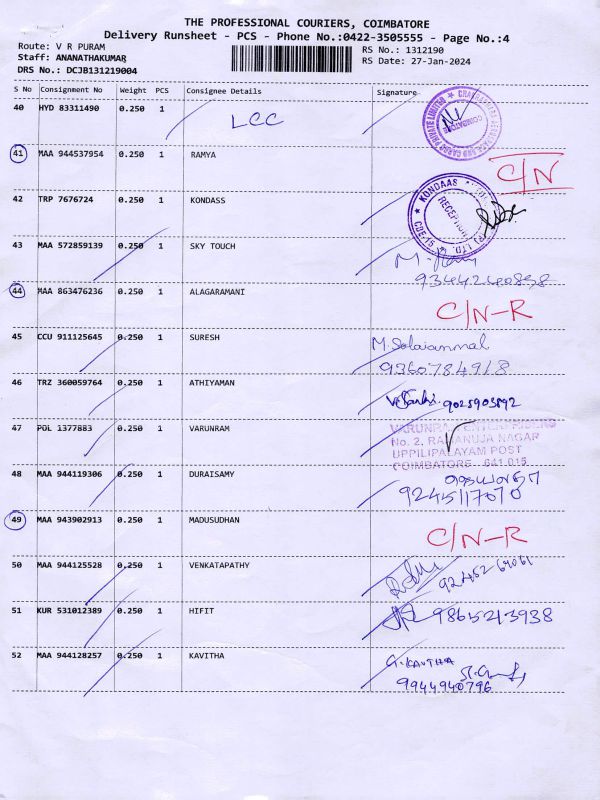 THE PROFESSIONAL COURIERS, COIMBATORE
Delivery Runsheet - PCS - Phone No.:0422-3505555 - Page No.:4
Route: V R PURAM
RS No.: 1312190
Staff: ANANATHAKUMAR
RS Date: 27-Jan-2024
DRS No.: DCJB131219004
S No Consignment No Weight PCS Consignee Details Signature
40 HYD 83311490 0.250 1 LCC
COIMBATORE
41 MAA 944537954 0.250 1 RAMYA C/N
42 TRP 7676724 0.250 1 KONDASS
KONDAAS
RECEPTION
43 MAA 572859139 0.250 1 SKY TOUCH
9344240898
44 MAA 863476236 0.250 1 ALAGARAMANI C/N-R
45 CCU 911125645 0.250 1 SURESH M. Solaiammal
9360784918
46 TRZ 360059764 0.250 1 ATHIYAMAN 9025903892
47 POL 1377883 0.250 1 VARUNRAM
No. 2, RAMANUJA NAGAR
UPPILIPALAYAM POST
COIMBATORE 641 015
48 MAA 944119306 0.250 1 DURAISAMY
9245117070
49 MAA 943902913 0.250 1 MADUSUDHAN C/N-R
50 MAA 944125528 0.250 1 VENKATAPATHY
51 KUR 531012389 0.250 1 HIFIT 9865213938
52 MAA 944128257 0.250 1 KAVITHA G. KAVITHA
9944940796